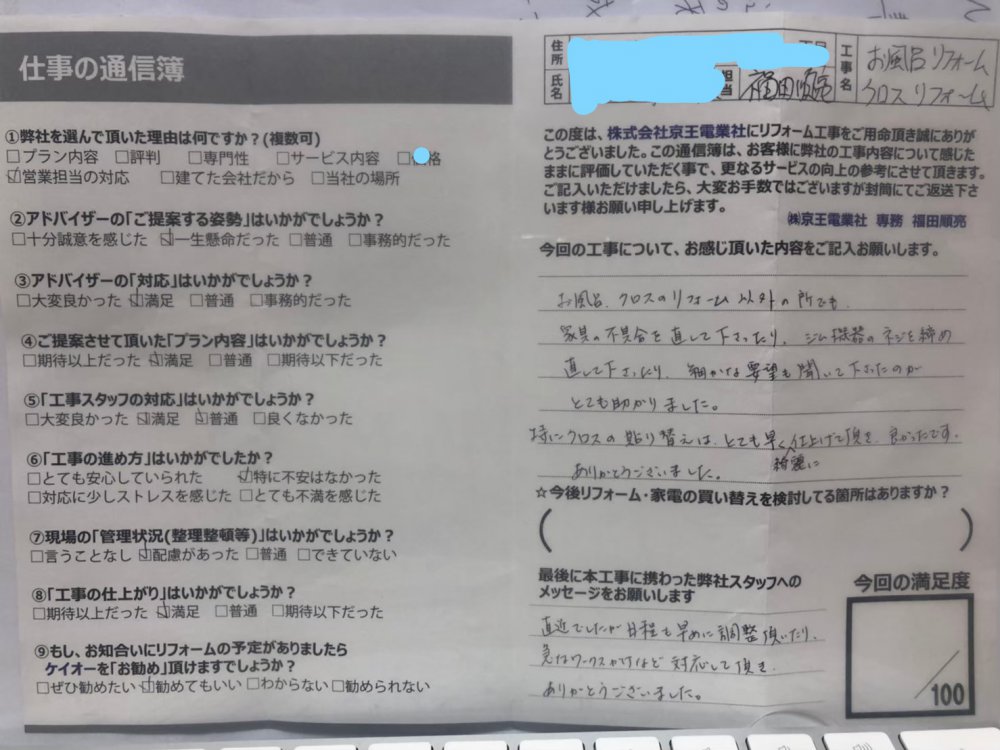 仕事の通信簿
①弊社を選んで頂いた理由は何ですか？(複数可)
□プラン内容 □評判 □専門性 □サービス内容 □格
☑営業担当の対応 □建てた会社だから □当社の場所
②アドバイザーの「ご提案する姿勢」はいかがでしょうか？
□十分誠意を感じた ☑一生懸命だった □普通 □事務的だった
③アドバイザーの「対応」はいかがでしょうか？
□大変良かった ☑満足 □普通 □事務的だった
④ご提案させて頂いた「プラン内容」はいかがでしょうか？
□期待以上だった ☑満足 □普通 □期待以下だった
⑤「工事スタッフの対応」はいかがでしょうか？
□大変良かった ☑満足 ☑普通 □良くなかった
⑥「工事の進め方」はいかがでしたか？
□とても安心していられた ☑特に不安はなかった
□対応に少しストレスを感じた □とても不満を感じた
⑦現場の「管理状況(整理整頓等)」はいかがでしょうか？
□言うことなし ☑配慮があった □普通 □できていない
⑧「工事の仕上がり」はいかがでしょうか？
□期待以上だった ☑満足 □普通 □期待以下だった
⑨もし、お知合いにリフォームの予定がありましたら
ケイオーを「お勧め」頂けますでしょうか？
□ぜひ勧めたい ☑勧めてもいい □わからない □勧められない
住所
氏名
担当 福田順亮
工事名 お風呂リフォーム
クロスリフォーム
この度は、株式会社京王電業社にリフォーム工事をご用命頂き誠にありが
とうございました。この通信簿は、お客様に弊社の工事内容について感じた
ままに評価していただく事で、更なるサービスの向上の参考にさせて頂きます。
ご記入いただけましたら、大変お手数ではございますが封筒にてご返送下さ
います様お願い申し上げます。
㈱京王電業社 専務 福田順亮
今回の工事について、お感じ頂いた内容をご記入お願いします。
お風呂、クロスのリフォーム以外の所でも、
家具の不具合を直して下さったり、ジム機器のネジを締め
直して下さったり、細かな要望も聞いて下さったのが
とても助かりました。
特にクロスの貼り替えは、とても早く綺麗に仕上げて頂き、良かったです。
ありがとうございました。
☆今後リフォーム・家電の買い替えを検討してる箇所はありますか？
( )
最後に本工事に携わった弊社スタッフへの
メッセージをお願いします
直近でしたが日程も早めに調整頂いたり、
急なワックスがけなど対応して頂き、
ありがとうございました。
今回の満足度
/100